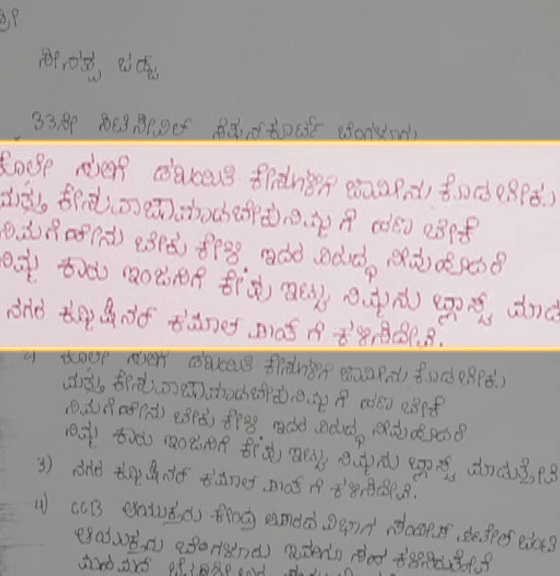 ಶ್ರೀ
ಸೀನಪ್ಪ ಜಡ್ಜ
33ನೇ ಸಿಟಿಸಿವಿಲ್ ಸೆಷನ್‌ಕೋರ್ಟ್ ಬೆಂಗಳೂರು
ಕೊಲೇ ಸುಲಿಗೆ ಡಕಾಯಿತಿ ಕೇಸುಗಳಿಗೆ ಜಾಮೀನು ಕೊಡಬೇಕು
ಮತ್ತು ಕೇಸು ವಜಾಮಾಡಬೇಕು ನಿಮ್ಮ ಗೆ ಹಣ ಬೇಕೆ
ನಿಮಗೆ ಏನು ಬೇಕು ಕೇಳಿ ಇದರ ವಿರುದ್ಧ ನೀವುಹೋದರೆ
ನಿಮ್ಮ ಕಾರು ಇಂಜಿನಿಗೆ ಇಟ್ಟು ನಿಮ್ಮನು ಬ್ಲಾಸ್ಟ್ ಮಾಡ
ನಗರ ಕಮೀಷಿನರ್ ಕಮಾಲ್ ಗೆ ಕಳಿಸಿದೇವೆ.
2) ಕೊಲೇ ಸುಲಿಗೆ ಡಕಾಯಿತಿ ಕೇಸುಗಳಿಗೆ ಜಾಮೀನು ಕೊಡಬೇಕು
ಮತ್ತು ಕೇಸು ವಜಾಮಾಡಬೇಕು ನಿಮ್ಮ ಗೆ ಹಣ ಬೇಕೆ
ನಿಮಗೆ ಏನು ಬೇಕು ಕೇಳಿ ಇದರ ವಿರುದ್ಧ ನೀವುಹೋದರೆ
ನಿಮ್ಮ ಕಾರು ಇಂಜಿನಿಗೆ ಇಟ್ಟು ನಿಮ್ಮನು ಬ್ಲಾಸ್ಟ್ ಮಾಡುತ್ತೇವೆ
3) ನಗರ ಕಮೀಷಿನರ್ ಕಮಾಲ್ ಗೆ ಕಳಿಸಿದೇವೆ.
4) CCB ಆಯುಕ್ತರು ಕೇಂದ್ರ ಅಪರಾಧ ವಿಭಾಗ ಸಂದೀಪ್ ಪಾಟೀಲ್
ಆಯುಕ್ತರು ಬೆಂಗಳೂರು ಇವರಿಗೂ ಸಹ ಕಳಿಸಿರುತ್ತೇವೆ